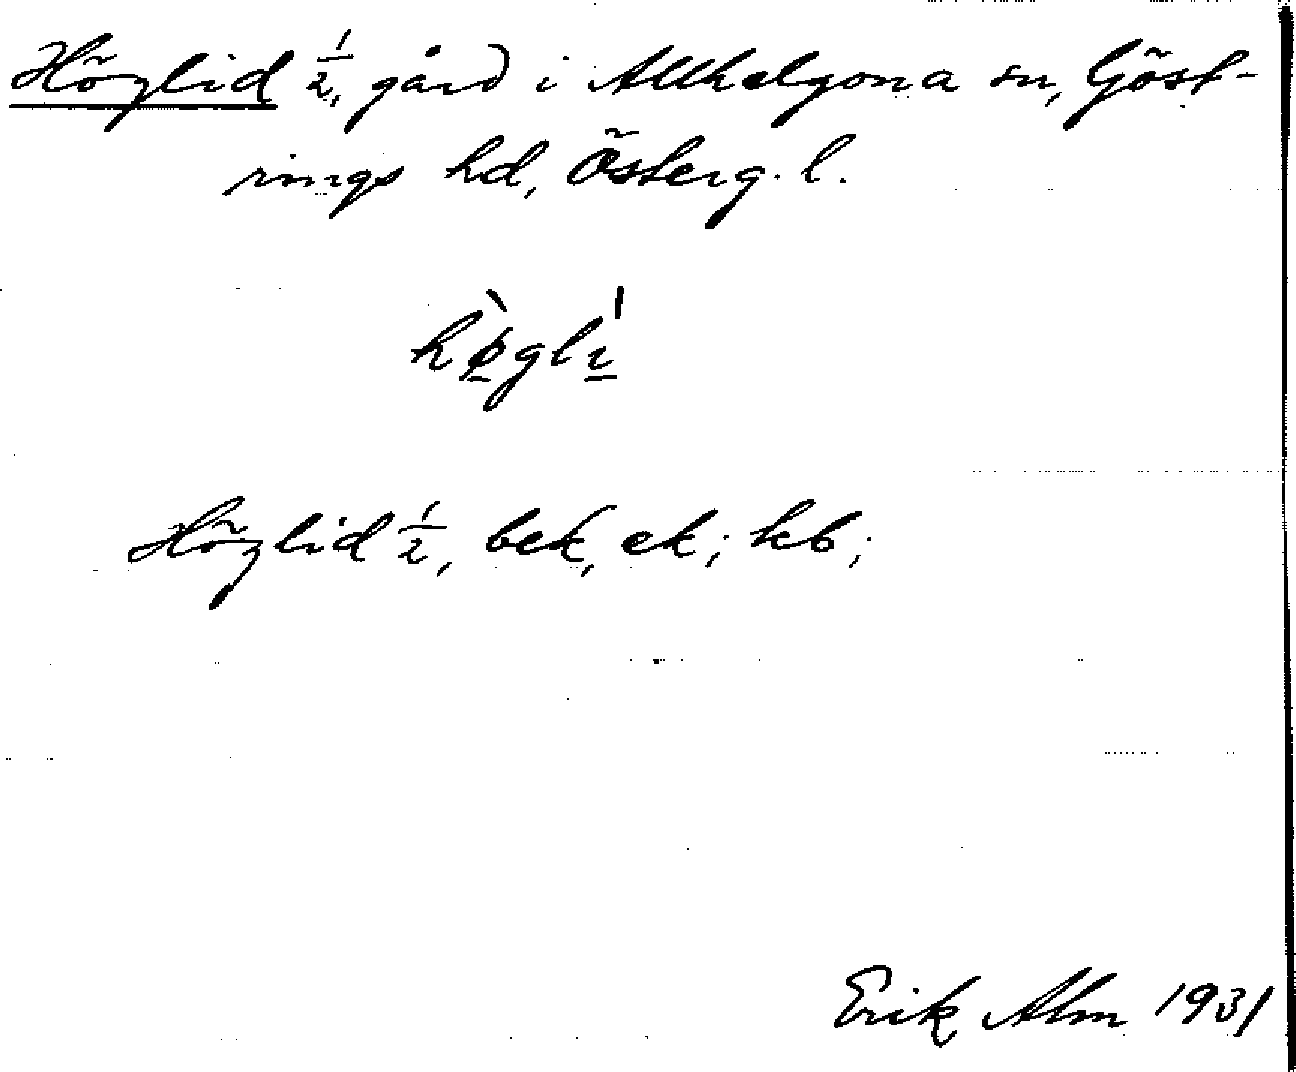 Höglid 1/2, gård i Allhelgona sn, Göst-
rings hd, Österg. l.
hø̀glı̍
Höglid 1/2, bek, ek; kb;
Erik Alm 1931